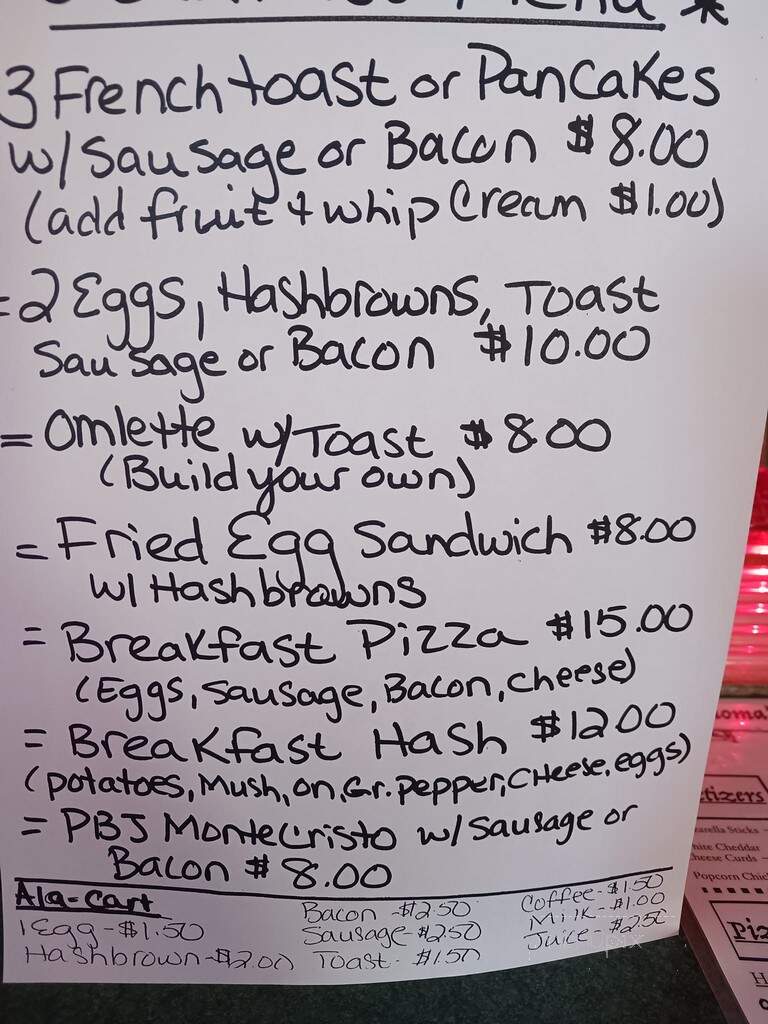 Menu *
3 French toast or Pancakes
w/ Sausage or Bacon $8.00
(add fruit + whip Cream $1.00)
= 2 Eggs, Hashbrowns, Toast
Sausage or Bacon $10.00
= Omlette w/ Toast $8.00
(Build your own)
= Fried Egg Sandwich $8.00
w/ Hashbrowns
= Breakfast Pizza $15.00
(Eggs, Sausage, Bacon, Cheese)
= Breakfast Hash $12.00
(potatoes, Mush, on, Gr. pepper, Cheese, eggs)
= PBJ MonteCristo w/ Sausage or
Bacon $8.00
Ala-cart
1 Egg - $1.50
Hashbrown - $2.00
Bacon - $2.50
Sausage - $2.50
Toast - $1.50
Coffee - $1.50
Milk - $1.00
Juice - $2.50
tizers
arella Sticks
ite Cheddar
heese Curds
Popcorn Chic
Piz
H